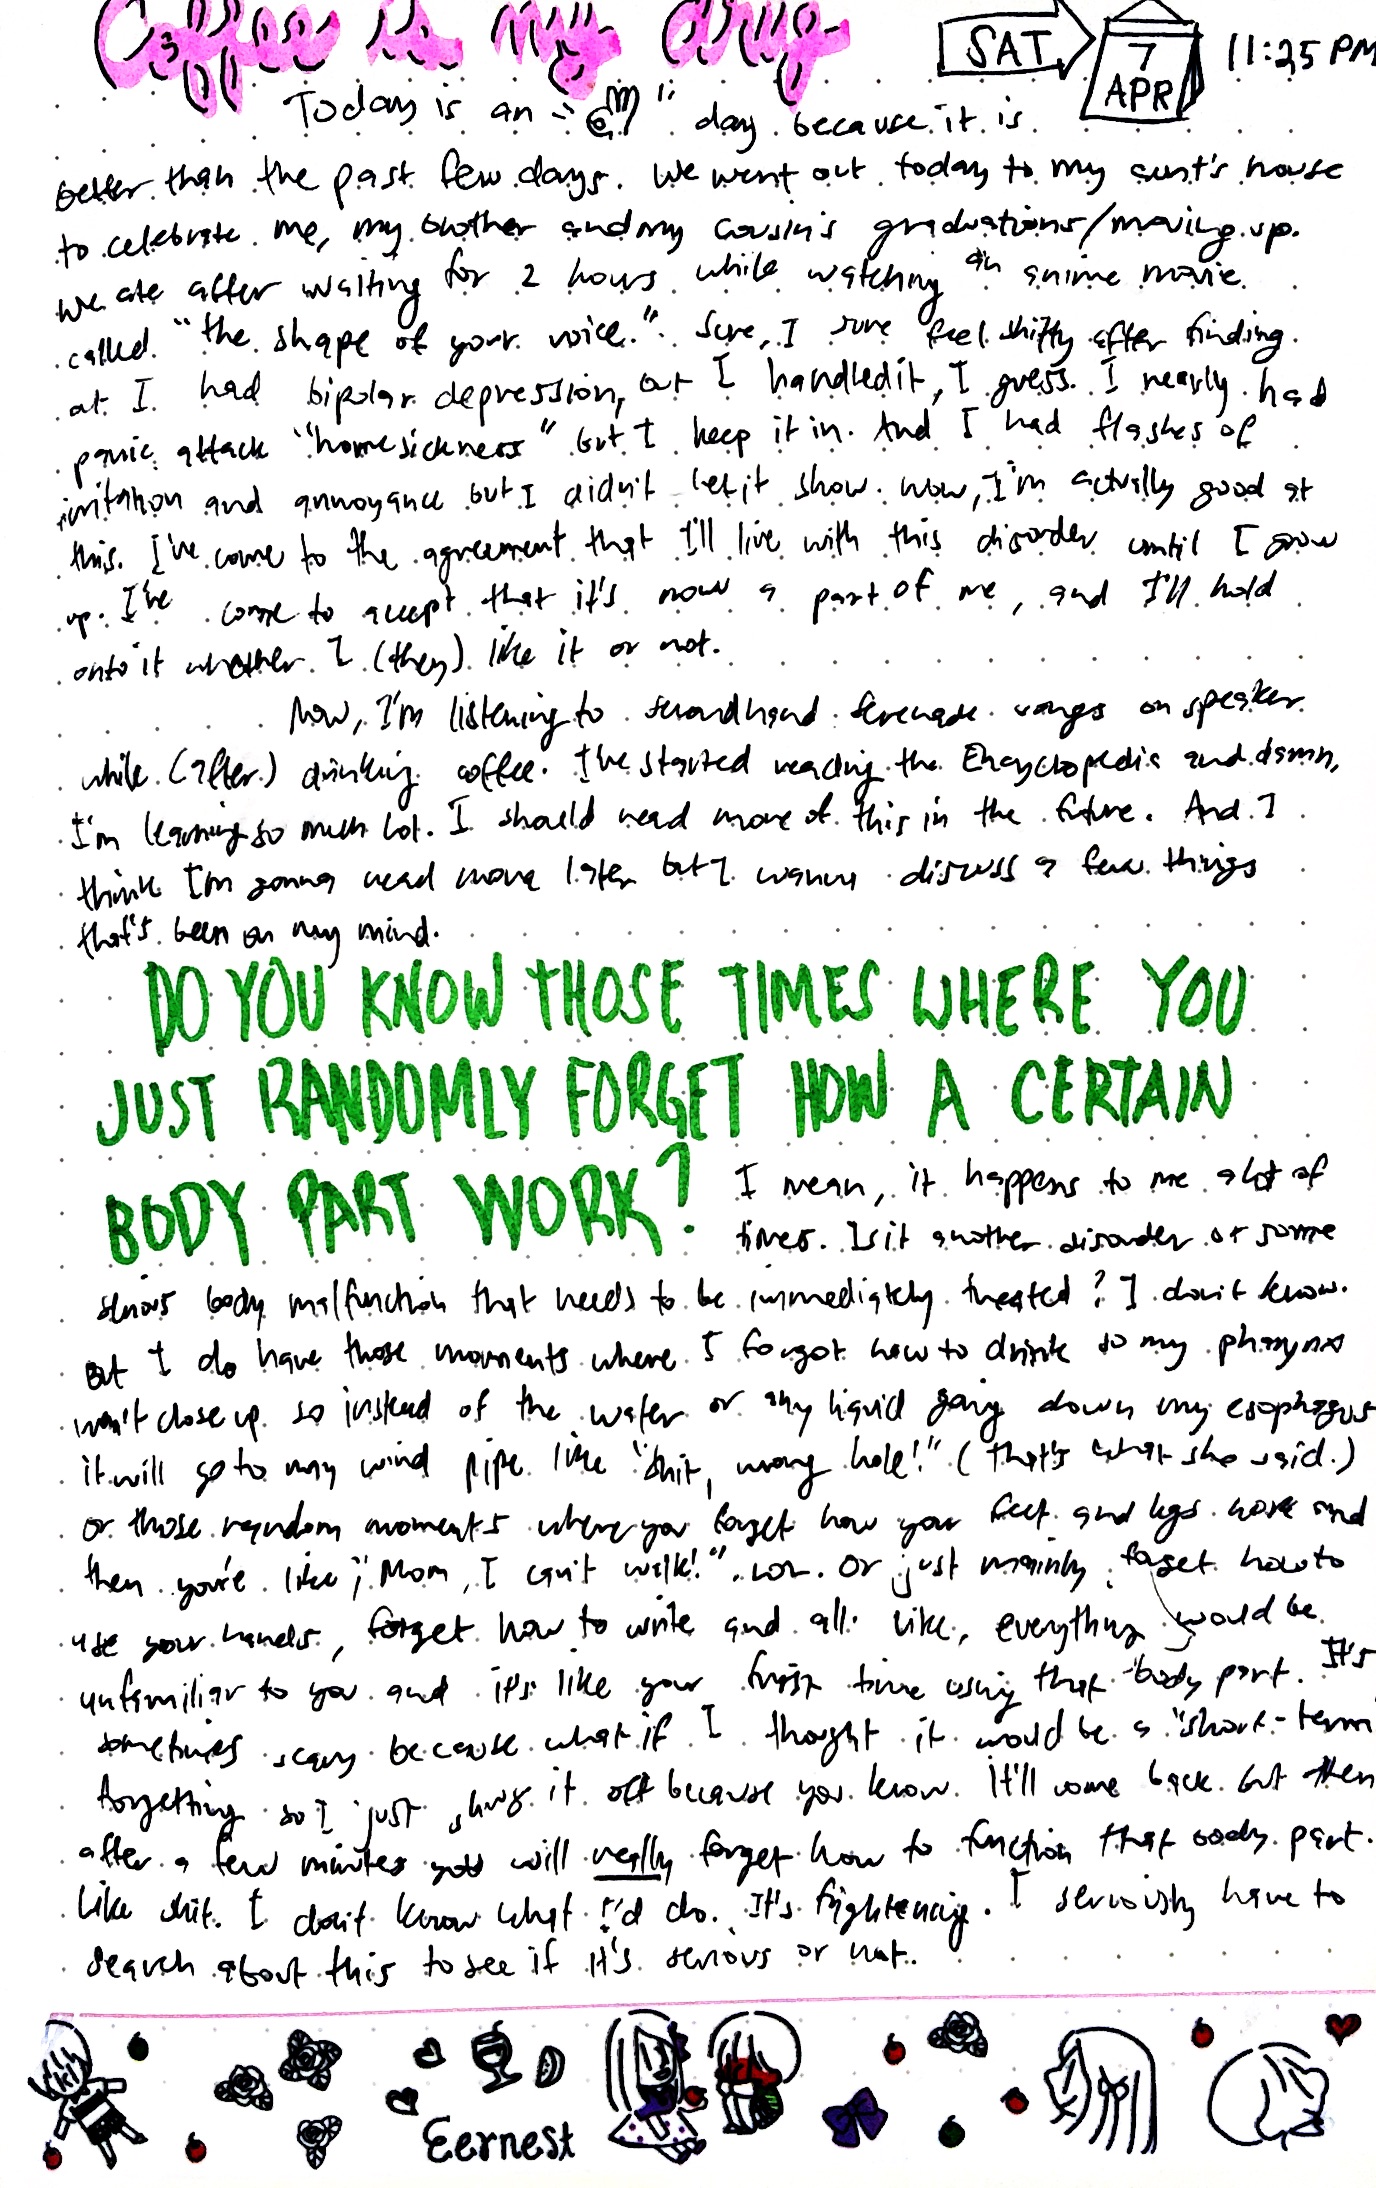 Coffee is my drug
SAT 7 APR 11:25 PM
Today is an "👌" day because it is
better than the past few days. We went out today to my aunt's house
to celebrate me, my brother and my cousin's graduations/moving up.
We ate after waiting for 2 hours while watching an anime movie
called "the shape of your voice." Sure, I sure feel shitty after finding
out I had bipolar depression, but I handled it, I guess. I nearly had
panic attack "homesickness" but I keep it in. And I had flashes of
irritation and annoyance but I didn't let it show. Now, I'm actually good at
this. I've come to the agreement that I'll live with this disorder until I grow
up. I've come to accept that it's now a part of me, and I'll hold
onto it whether I (they) like it or not.
Now, I'm listening to secondhand serenade songs on speaker
while (after) drinking coffee. I've started reading the Encyclopedia and damn,
I'm learning so much lot. I should read more of this in the future. And I
think I'm gonna read more later but I wanna discuss a few things
that's been on my mind.
DO YOU KNOW THOSE TIMES WHERE YOU
JUST RANDOMLY FORGET HOW A CERTAIN
BODY PART WORK?
I mean, it happens to me a lot of
times. Is it another disorder or some
serious body malfunction that needs to be immediately treated? I don't know.
But I do have those moments where I forgot how to drink so my pharynx
won't close up so instead of the water or any liquid going down my esophagus
it will go to my wind pipe like "shit, wrong hole!" (That's what she said.)
or those random moments where you forget how your feet and legs work and
then you're like, "Mom, I can't walk!". LOL. Or just mainly forget how to
use your hands, forget how to write and all. Like, everything would be
unfamiliar to you and it's like your first time using that body part. It's
sometimes scary because what if I thought it would be a "short-term
forgetting so I just shrug it off because you know. It'll come back but then
after a few minutes you will really forget how to function that body part.
Like shit. I don't know what I'd do. It's frightening. I seriously have to
search about this to see if it's serious or not.
Eernest